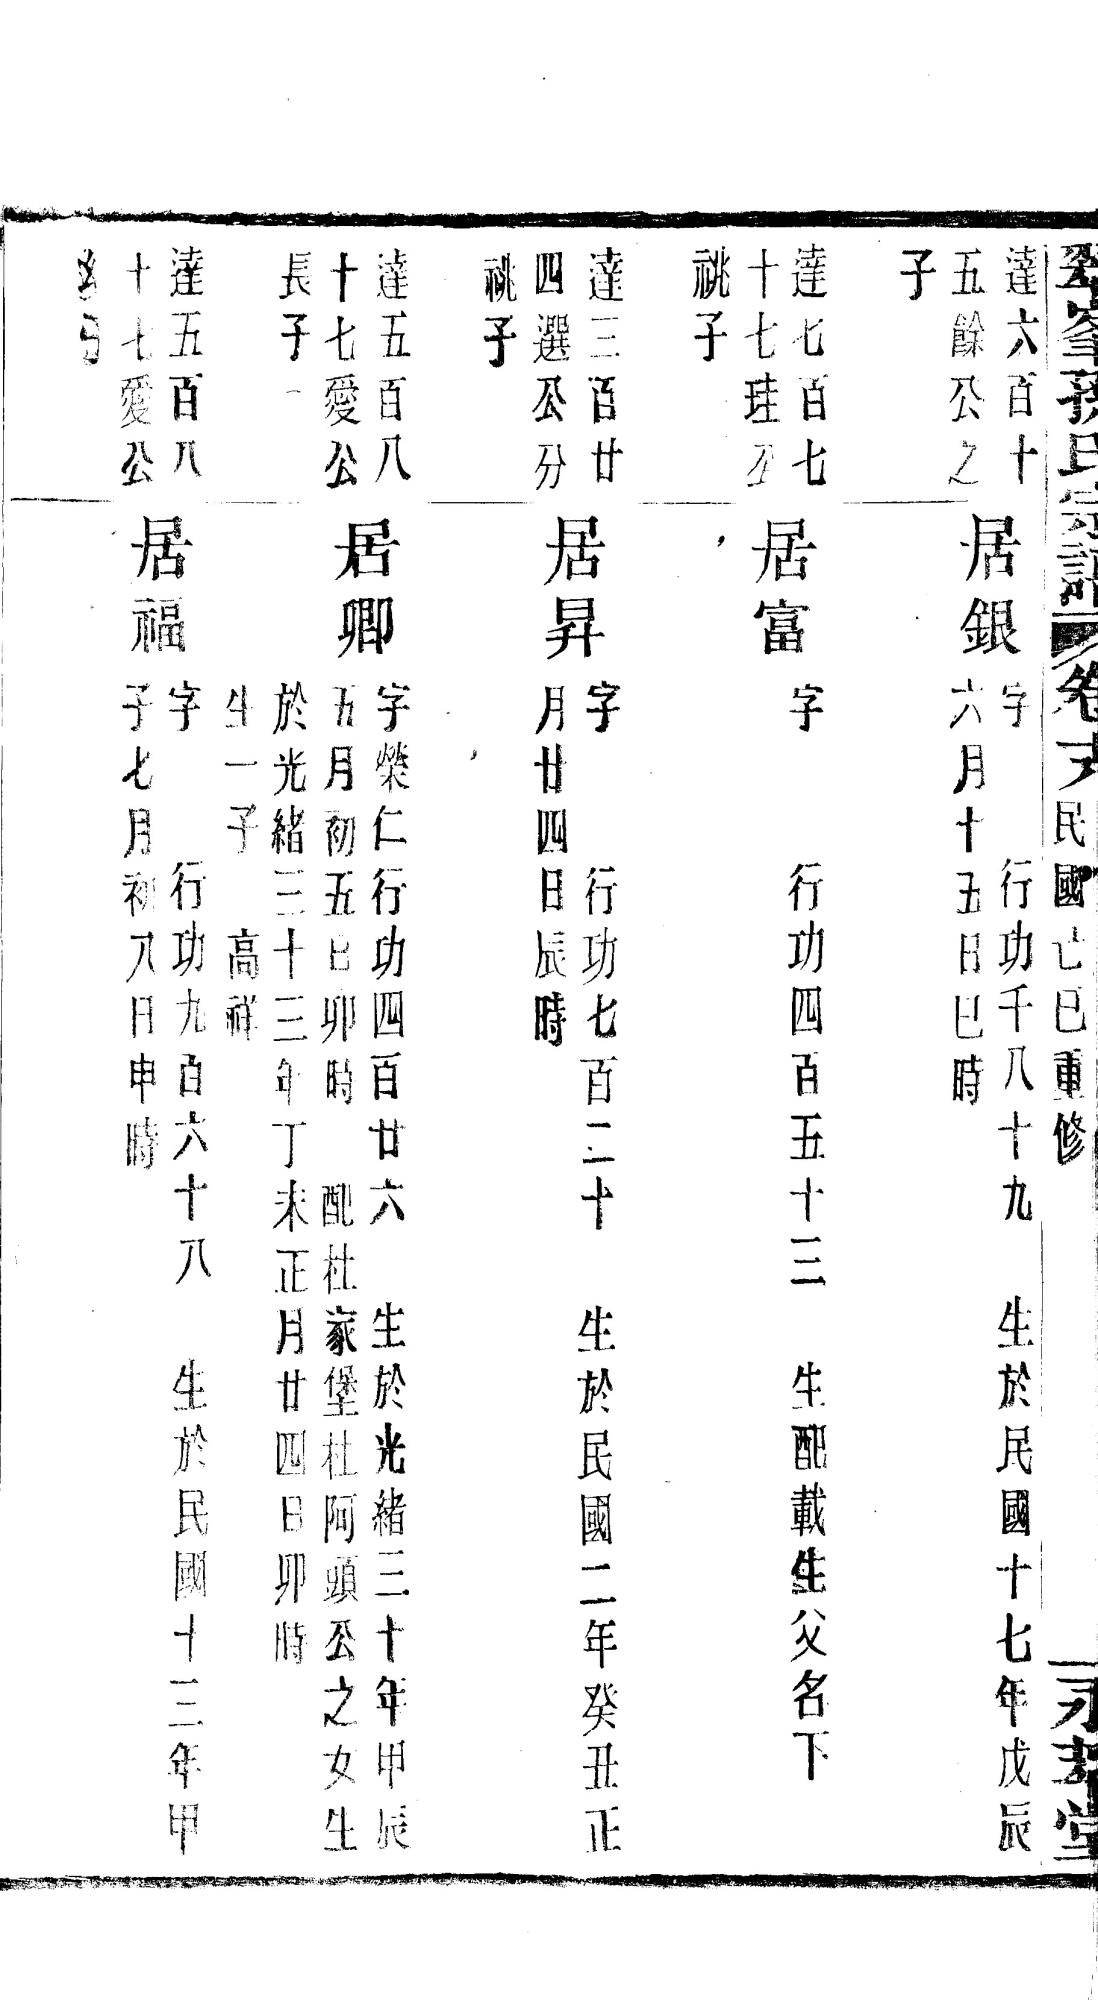 孫氏宗譜 卷 民國乙巳重修 堂
達六百十
五餘公之
子
居銀
字 行功千八十九 生於民國十七年戊辰
六月十五日巳時
達七百七
十七珪公
祧子
居富
字 行功四百五十三 生配載生父名下
達三百廿
四選公分
祧子
居昇
字 行功七百二十 生於民國二年癸丑正
月廿四日辰時
達五百八
十七愛公
長子
居卿
字榮仁行功四百廿六 生於光緒三十年甲辰
五月初五日卯時 配杜家堡杜阿頭公之女生
於光緒三十三年丁未正月廿四日卯時
生一子 高祥
達五百八
十七愛公
居福
字 行功九百六十八 生於民國十三年甲
子七月初八日申時